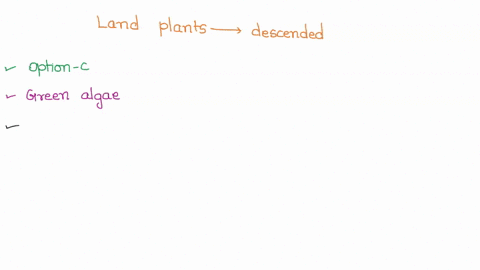 Land plants → descended
✓ Option-c
✓ Green algae
✓